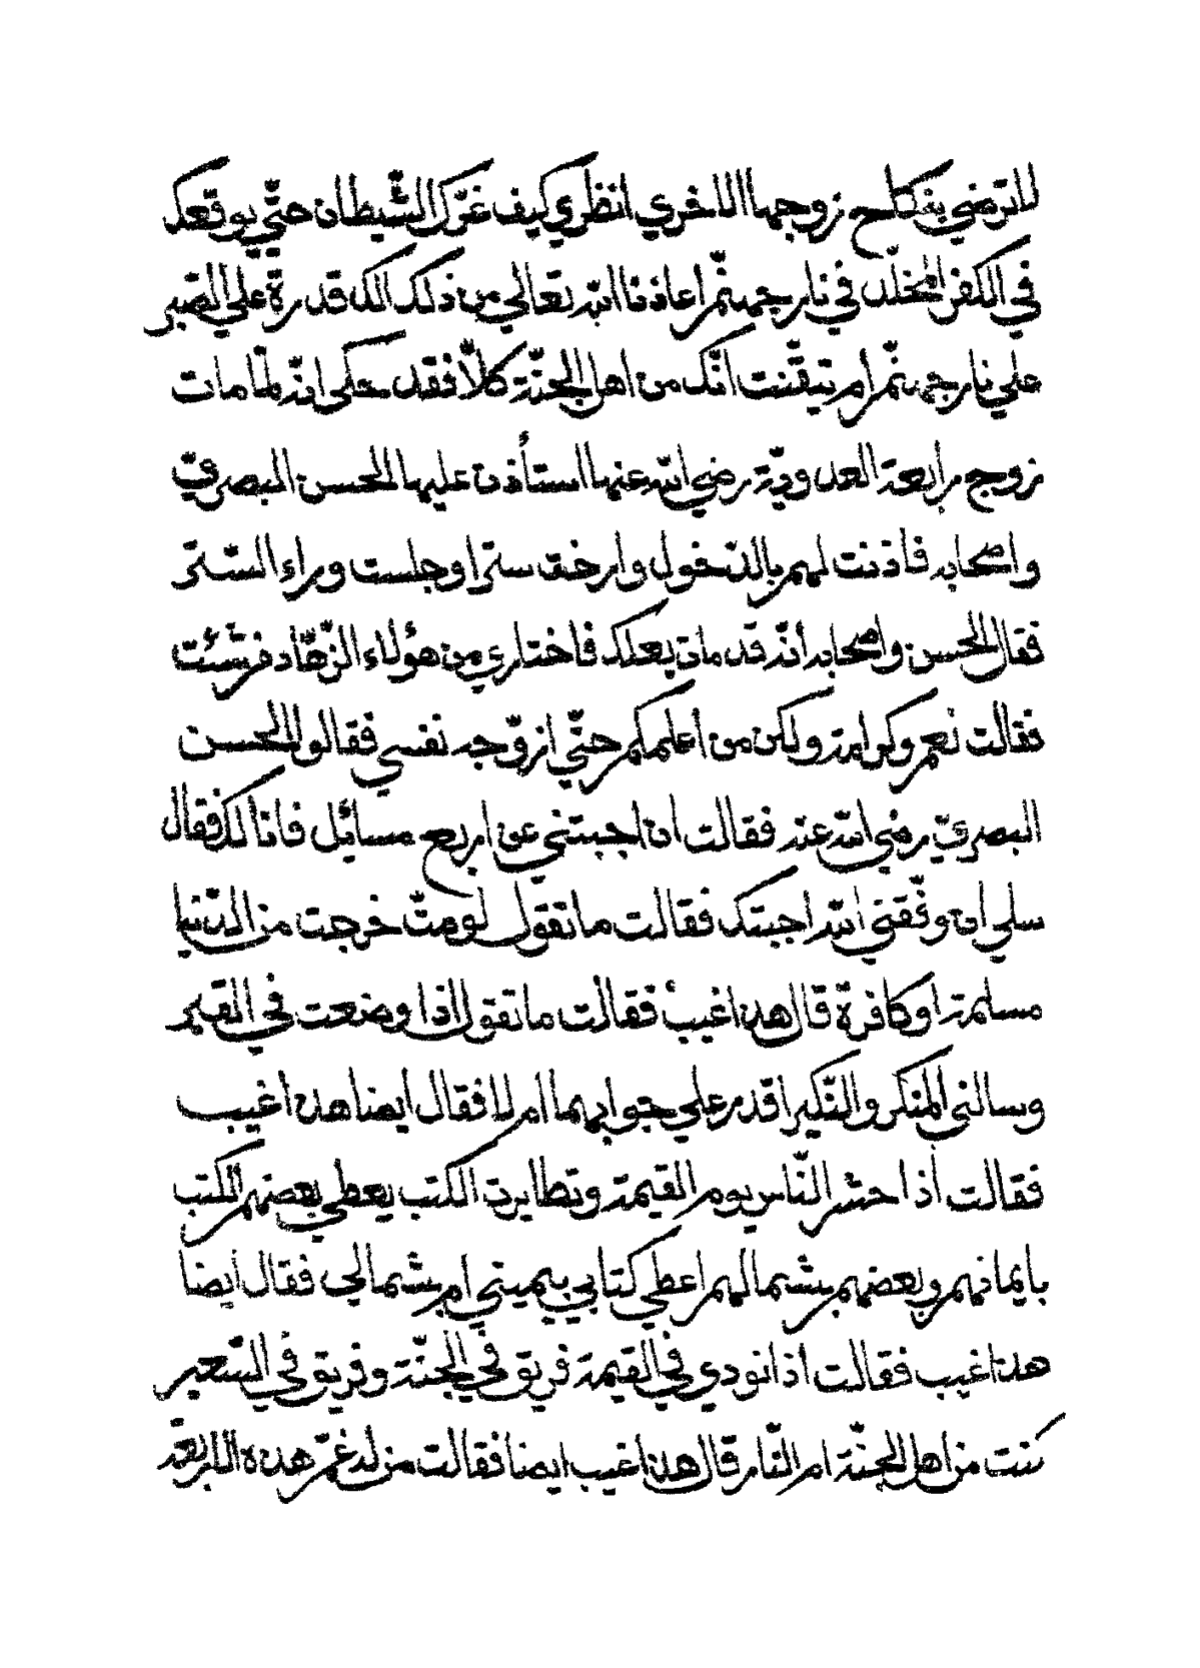 لا ترضي بنكاح زوجها الاخري انظري كيف غرّك الشّيطان حتّي يوقعك
في الكفر المخلّد في نار جهنّم اعاذنا اللّه تعالي من ذلك الك قدرة علي الصّبر
علي نار جهنّم ام تيقّنت انّك من اهل الجنّة كلّا فقد حكى انّه لمّا مات
زوج رابعة العدويّة رضي اللّه عنها استأذن عليها الحسن البصريّ
واصحابه فأذنت لهم بالدّخول وارخت سترا وجلست وراء السّتر
فقال الحسن واصحابه أنّه قد مات بعلك فاختاري من هؤلاء الزّهّاد من شئت
فقالت نعم وكرامة ولكن من أعلمكم حتّي ازوّجه نفسي فقالوا الحسن
البصريّ رضي اللّه عنه فقالت ان اجبتني عن اربع مسائل فانا لك فقال
سلي ان وفّقني اللّه اجبتك فقالت ما تقول لو متّ خرجت من الدّنيا
مسلمة او كافرة قال هذا غيب فقالت ما تقول اذا وضعت في القبر
وسالني المنكر والنّكير اقدر علي جوابهما ام لا فقال ايضا هذا غيب
فقالت أذا حشر النّاس يوم القيمة وتطايرت الكتب يعطي بعضهم الكتب
بايمانهم وبعضهم بشمالهم اعطي كتابي بيميني ام بشمالي فقال أيضا
هذا غيب فقالت أذا نودي في القيمة فريق في الجنّة وفريق في السّعير
كنت من اهل الجنّة ام النّار قال هذا غيب ايضا فقالت من له غمّ هذه الاربعة